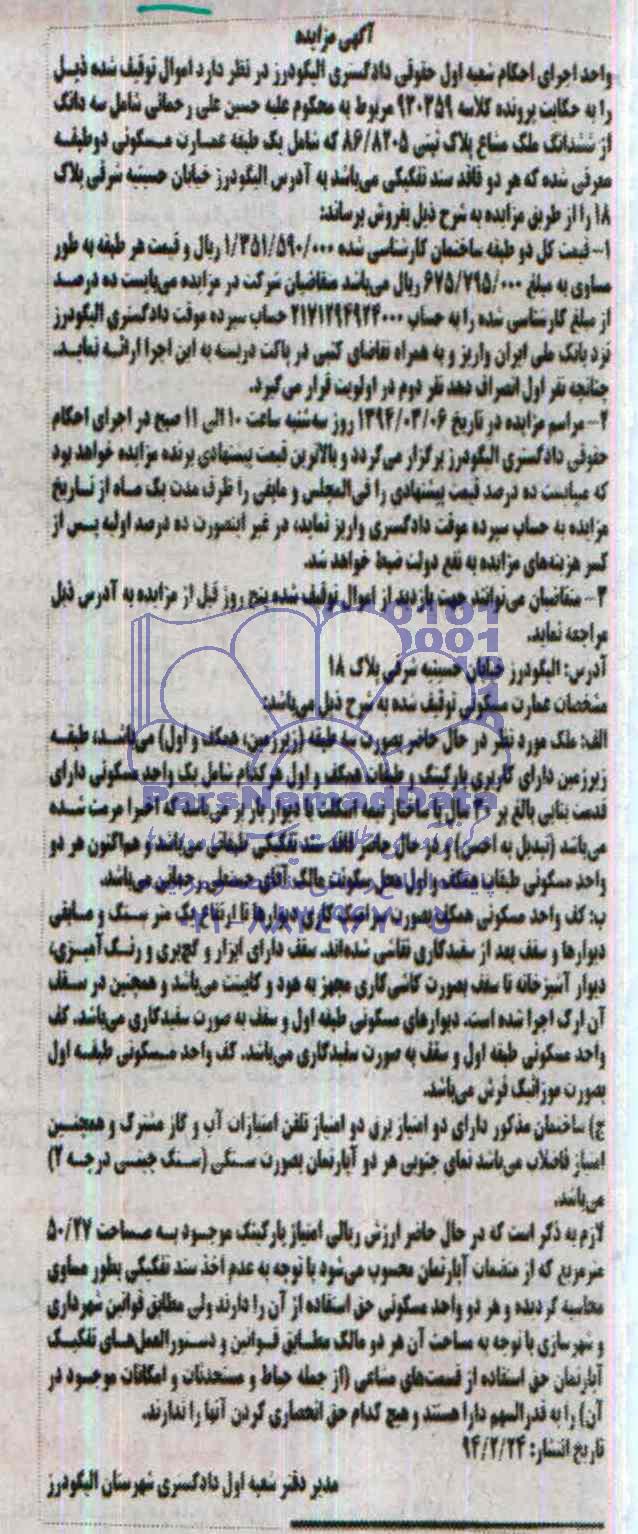 آگهی مزایده
واحد اجرای احکام شعبه اول حقوقی دادگستری الیگودرز در نظر دارد اموال توقیف شده ذیل
را به حکایت پرونده کلاسه ۹۳۰۳۵۹ مربوط به محکوم علیه حسین علی رحمانی شامل سه دانگ
از ششدانگ ملک مشاع پلاک ثبتی ۸۶/۸۲۰۵ که شامل یک طبقه عمارت مسکونی دوطبقه
معرفی شده که هر دو فاقد سند تفکیکی می‌باشد به آدرس الیگودرز خیابان حسینیه شرقی پلاک
۱۸ را از طریق مزایده به شرح ذیل بفروش برساند:
۱- قیمت کل دو طبقه ساختمان کارشناسی شده ۱/۳۵۱/۵۹۰/۰۰۰ ریال و قیمت هر طبقه به طور
مساوی به مبلغ ۶۷۵/۷۹۵/۰۰۰ ریال می‌باشد متقاضیان شرکت در مزایده می‌بایست ده درصد
از مبلغ کارشناسی شده را به حساب ۲۱۷۱۲۹۴۹۲۴۰۰۰ حساب سپرده موقت دادگستری الیگودرز
نزد بانک ملی ایران واریز و به همراه تقاضای کتبی در پاکت دربسته به این اجرا ارائه نماید.
چنانچه نفر اول انصراف دهد نفر دوم در اولویت قرار می‌گیرد.
۲- مراسم مزایده در تاریخ ۱۳۹۴/۰۳/۰۶ روز سه‌شنبه ساعت ۱۰ الی ۱۱ صبح در اجرای احکام
حقوقی دادگستری الیگودرز برگزار می‌گردد و بالاترین قیمت پیشنهادی برنده مزایده خواهد بود
که میبایست ده درصد قیمت پیشنهادی را فی‌المجلس و مابقی را ظرف مدت یک ماه از تاریخ
مزایده به حساب سپرده موقت دادگستری واریز نماید، در غیر اینصورت ده درصد اولیه پس از
کسر هزینه‌های مزایده به نفع دولت ضبط خواهد شد.
۳- متقاضیان می‌توانند جهت بازدید از اموال توقیف شده پنج روز قبل از مزایده به آدرس ذیل
مراجعه نماید.
آدرس: الیگودرز خیابان حسینیه شرقی پلاک ۱۸
مشخصات عمارت مسکونی توقیف شده به شرح ذیل می‌باشد:
الف: ملک مورد نظر در حال حاضر بصورت سه طبقه (زیرزمین، همکف و اول) می‌باشد، طبقه
زیرزمین دارای کاربری پارکینگ و طبقات همکف و اول هرکدام شامل یک واحد مسکونی دارای
قدمت بنایی بالغ بر ۳۰ سال با ساختار نیمه اسکلت با دیوار باربر می‌باشد که اخیرا مرمت شده
می‌باشد (تبدیل به احسن) و در حال حاضر فاقد سند تفکیکی طبقاتی می‌باشد و هم‌اکنون هر دو
واحد مسکونی طبقات همکف و اول محل سکونت مالک آقای حسینعلی رحمانی می‌باشد.
ب: کف واحد مسکونی همکف بصورت سرامیک کاری دیوارها تا ارتفاع یک متر سنگ و مابقی
دیوارها و سقف بعد از سفیدکاری نقاشی شده‌اند. سقف دارای ابزار و گچبری و رنگ آمیزی،
دیوار آشپزخانه تا سقف بصورت کاشی کاری مجهز به هود و کابینت می‌باشد و همچنین در سقف
آن ارک اجرا شده است. دیوارهای مسکونی طبقه اول و سقف به صورت سفیدکاری می‌باشد. کف
واحد مسکونی طبقه اول و سقف به صورت سفیدکاری می‌باشد. کف واحد مسکونی طبقه اول
بصورت موزائیک فرش می‌باشد.
ج) ساختمان مذکور دارای دو امتیاز برق دو امتیاز تلفن امتیازات آب و گاز مشترک و همچنین
امتیاز فاضلاب می‌باشد نمای جنوبی هر دو آپارتمان بصورت سنگی (سنگ چینی درجه ۲)
می‌باشد.
لازم به ذکر است که در حال حاضر ارزش ریالی امتیاز پارکینگ موجود به مساحت ۵۰/۲۷
مترمربع که از منضمات آپارتمان محسوب می‌شود با توجه به عدم اخذ سند تفکیکی بطور مساوی
محاسبه گردیده و هر دو واحد مسکونی حق استفاده از آن را دارند ولی مطابق قوانین شهرداری
و شهرسازی با توجه به مساحت آن هر دو مالک مطابق قوانین و دستورالعمل‌های تفکیک
آپارتمان حق استفاده از قسمت‌های مشاعی (از جمله حیاط و مستحدثات و امکانات موجود در
آن) را به قدرالسهم دارا هستند و هیچ کدام حق انحصاری کردن آنها را ندارند.
تاریخ انتشار: ۹۴/۲/۲۴
مدیر دفتر شعبه اول دادگستری شهرستان الیگودرز
ParsNamadData